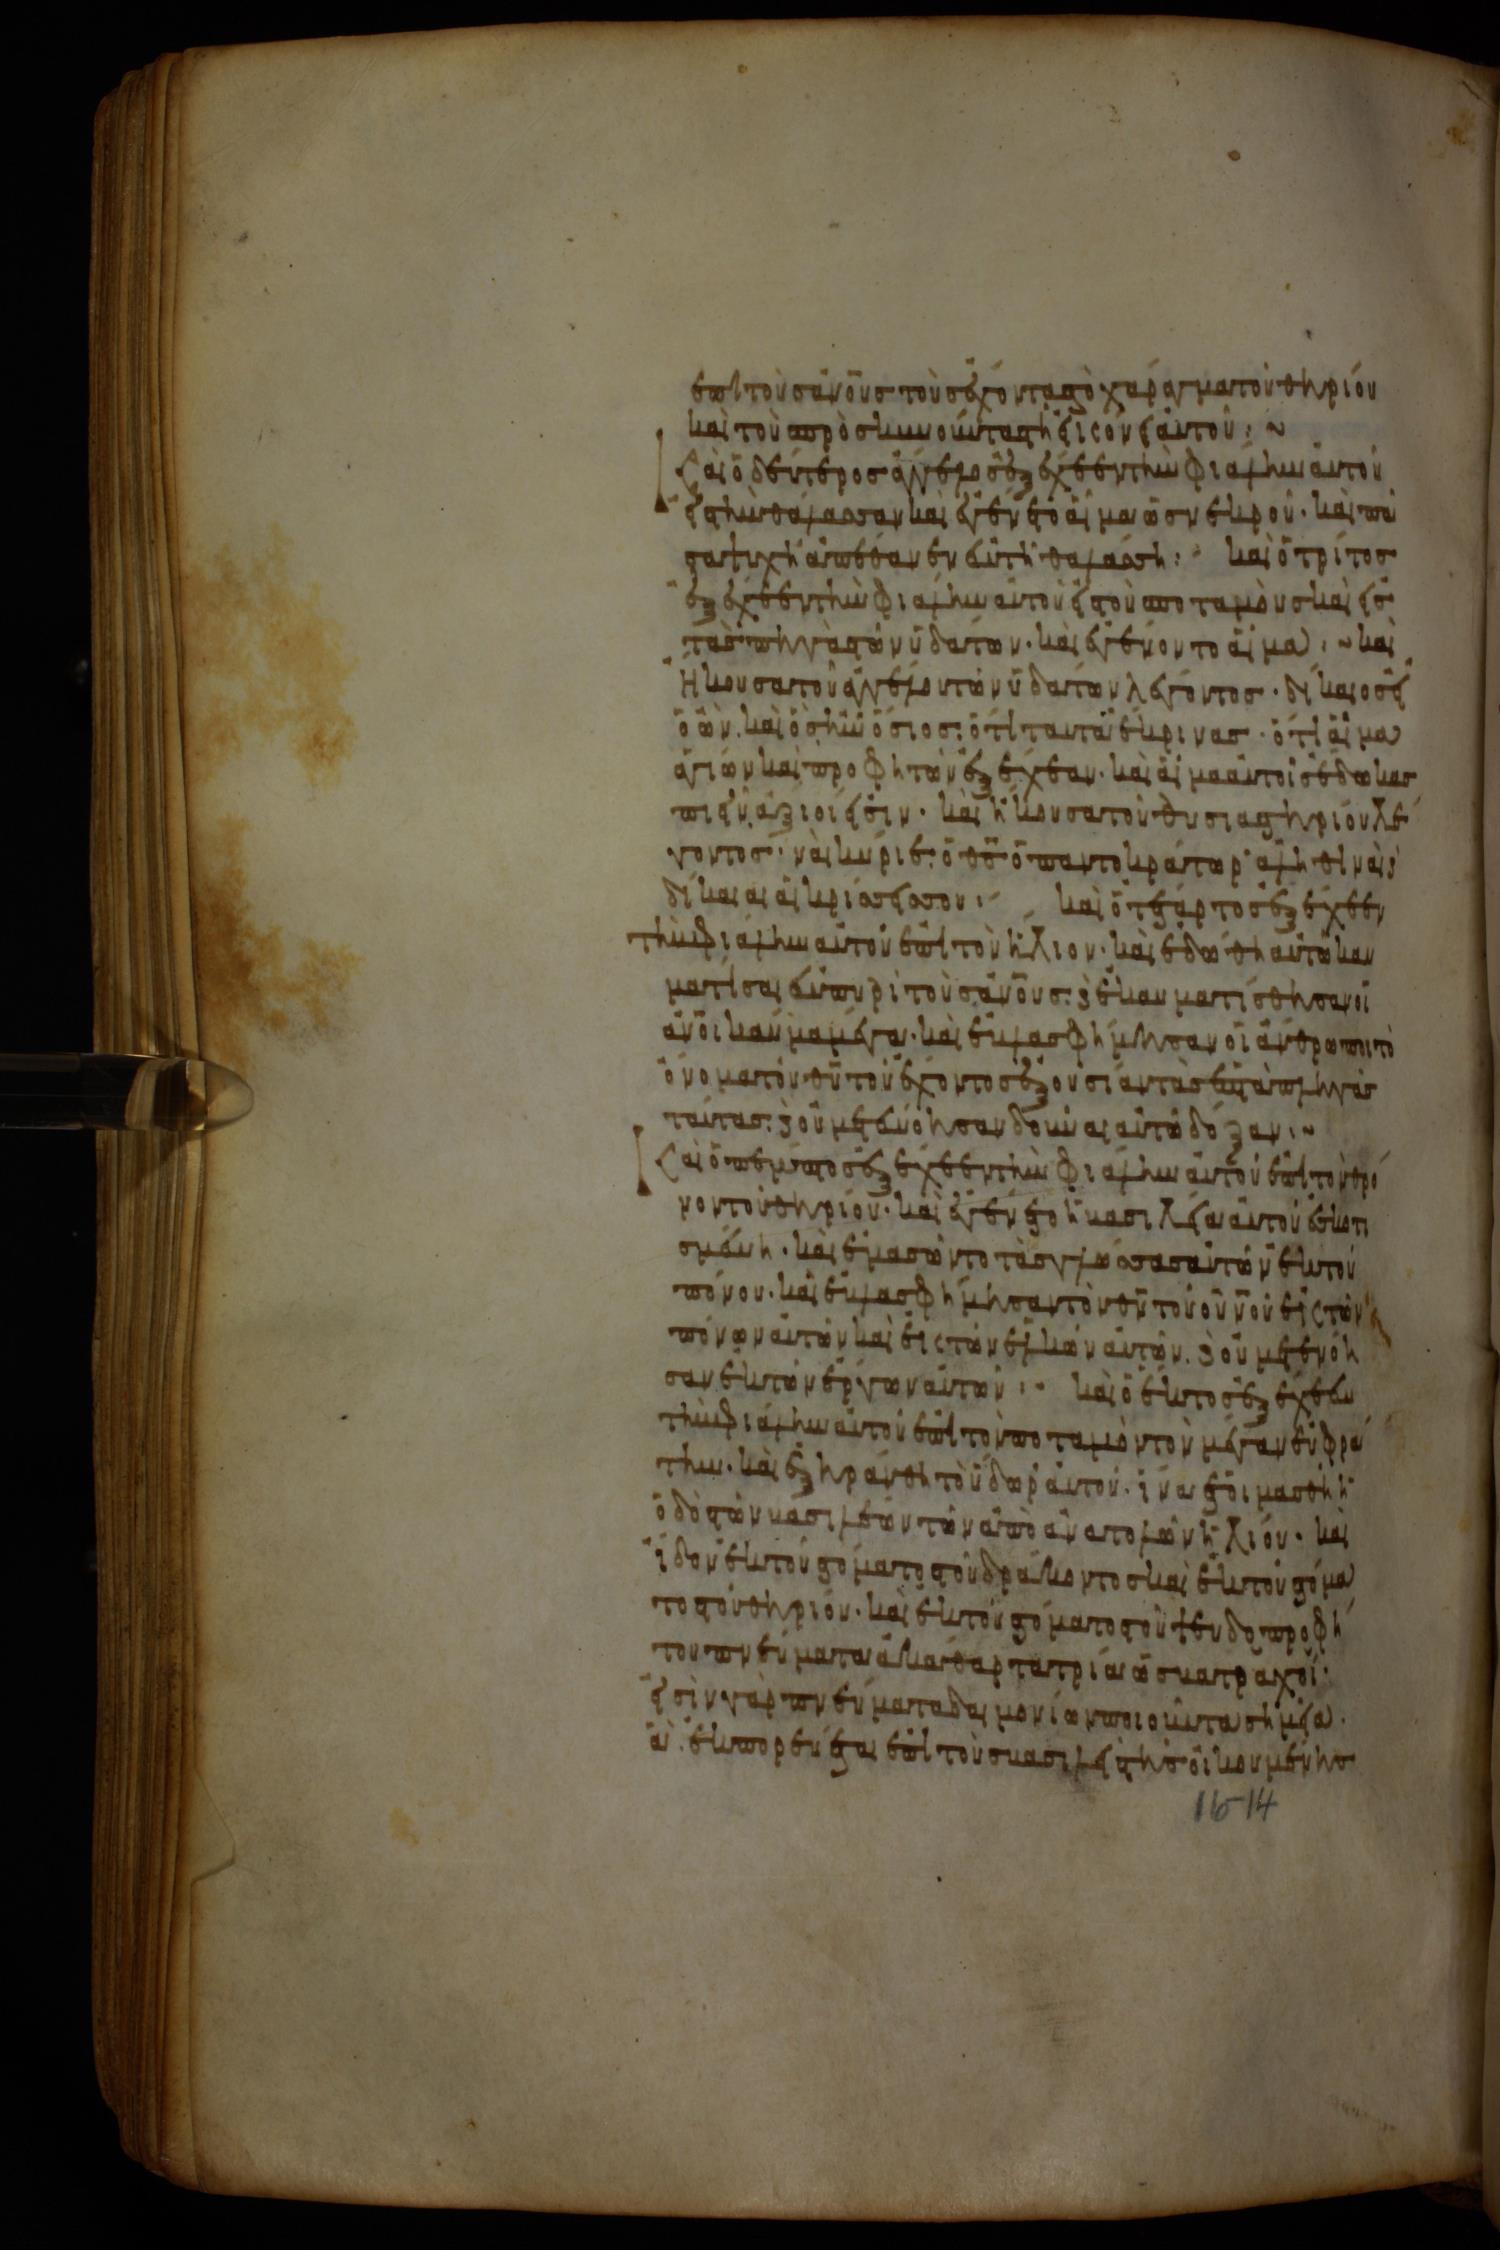 ἐπὶ τοὺς ἀνο̅υς τοὺς ἔχοντας τὸ χάραγμα τοῦ θηρίου
καὶ τοὺ προσκυνοῦντας τῆ εἰκόνι αὐτοῦ :~
Καὶ ὁ δεύτερος ἄγγελος ἐξέχεεν τὴν φιάλην αὐτοῦ
εἰς τὴν θάλασσαν καὶ ἐγένετο αἷμα ὡς νεκροῦ· καὶ πᾶ
σα ψυχὴ ἀπέθανεν ἐν τῆ θαλάσση : καὶ ὁ τρίτος
ἐξέχεεν τὴν φιάλην αὐτοῦ εἰς τοὺς ποταμοὺς καὶ εἰς
τὰς πηγὰς τῶν ὑδάτων· καὶ ἐγένοντο αἷμα :~ καὶ
ἤκουσα τοῦ ἀγγέλου τῶν ὑδάτων λέγοντος· δίκαιος εἶ
ὁ ὢν καὶ ὁ ἦν ὁ ὅσιος· ὅτι ταῦτα ἔκρινας· ὅτι αἷμα
ἁγίων καὶ προφητῶν ἐξέχεαν· καὶ αἷμα αὐτοῖς ἔδωκας
πιεῖν ἄξιοί εἰσιν· καὶ ἤκουσα τοῦ θυσιαστηρίου λέ
γοντος· ναὶ κύριε ὁ θς̅ ὁ παντοκράτωρ ἀληθιναὶ ϗ
δίκαιαι αἱ κρίσεις σου : καὶ ὁ τέταρτος ἐξέχεεν
τὴν φιάλην αὐτοῦ ἐπὶ τὸν ἥλιον· καὶ ἐδώθη αὐτῶ καυ
ματίσαι ἐν πυρὶ τοὺς ἀνο̅υς· ϗ ἐκαυματίσθησαν οἱ
ἀνο̅ι καῦμα μέγα· καὶ ἐβλασφήμησαν οἱ ἄνθρωποι τὸ
ὄνομα τοῦ θυ̅ τοῦ ἔχοντος ἐξουσίαν τὰς ἐπὶ τὰς πληγὰς
ταύτας· ϗ οὐ μετενόησαν δοῦναι αὐτῶ δόξαν :~
Καὶ ὁ πέμπτος ἐξέχεεν τὴν φιάλην αὐτοῦ ἐπὶ τὸν θρό
νον τοῦ θηρίου· καὶ ἐγένετο ἡ βασιλεία αὐτοῦ ἐσκοτι
σμένη· καὶ ἐμασῶντο τὰς γλώσσας αὐτῶν ἐκ τοῦ
πόνου· καὶ ἐβλασφήμησαν τὸν θν̅ τοῦ οὐνοῦ ἐκ τῶν
πόνων αὐτῶν καὶ ἐκ τῶν ἑλκῶν αὐτῶν· ϗ οὐ μετενόη
σαν ἐκ τῶν ἔργων αὐτῶν :~ καὶ ὁ ἕκτος ἐξέχεεν
τὴν φιάλην αὐτοῦ ἐπὶ τὸν ποταμὸν τὸν μέγαν εὐφρά
την· καὶ ἐξηράνθη τὸ ὕδωρ αὐτοῦ· ἵνα ἑτοιμασθῆ ἡ
ὁδὸς τῶν βασιλέων τῶν ἀπὸ ἀνατολῶν ἡλίου· καὶ
ἴδον ἐκ τοῦ στόματος τοῦ δράκοντος καὶ ἐκ τοῦ στόμα
τος τοῦ θηρίου· καὶ ἐκ τοῦ στόματος τοῦ ψευδοπροφή
του πνεύματα ἀκάθαρτα τρία ὡς βάτραχοι·
εἰσὶν γὰρ πνεύματα δαιμονίων ποιοῦντα σημεῖα·
ἃ ἐκπορεύεται ἐπὶ τοὺς βασιλεῖς τῆς οἰκουμένης
16-14